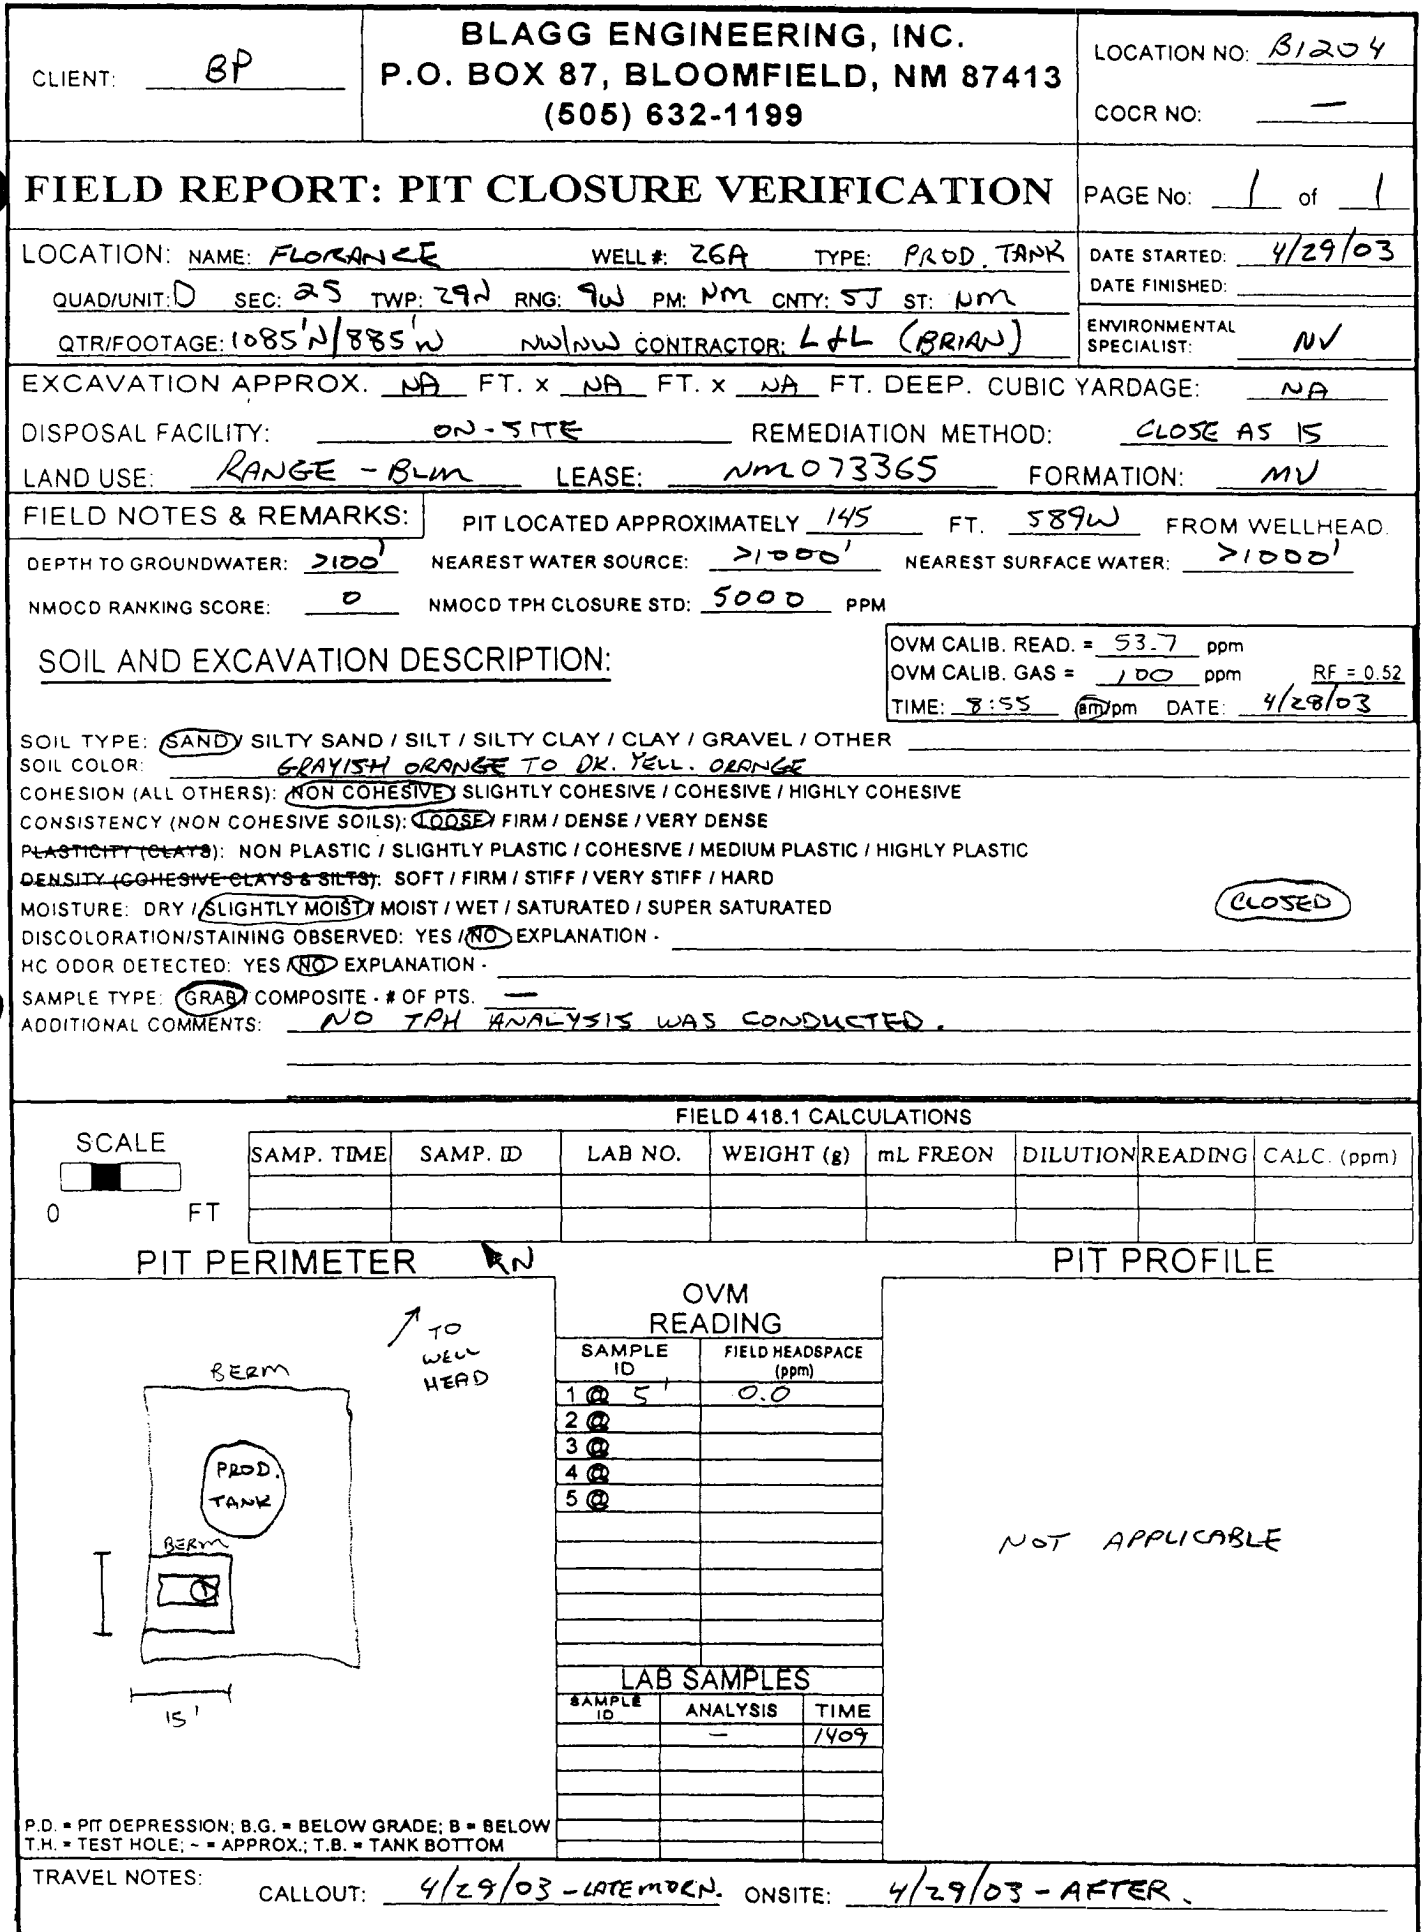 BLAGG ENGINEERING, INC.
CLIENT: BP
P.O. BOX 87, BLOOMFIELD, NM 87413
(505) 632-1199
LOCATION NO: B1204
COCR NO: —
FIELD REPORT: PIT CLOSURE VERIFICATION
PAGE No: 1 of 1
LOCATION: NAME: FLORANCE WELL #: 26A TYPE: PROD. TANK
QUAD/UNIT: D SEC: 25 TWP: 29N RNG: 9W PM: NM CNTY: SJ ST: NM
QTR/FOOTAGE: 1085'N/885'W NW/NW CONTRACTOR: L&L (BRIAN)
DATE STARTED: 4/29/03
DATE FINISHED:
ENVIRONMENTAL
SPECIALIST: NV
EXCAVATION APPROX. NA FT. x NA FT. x NA FT. DEEP. CUBIC YARDAGE: NA
DISPOSAL FACILITY: ON-SITE REMEDIATION METHOD: CLOSE AS IS
LAND USE: RANGE - BLM LEASE: NM073365 FORMATION: MV
FIELD NOTES & REMARKS: PIT LOCATED APPROXIMATELY 145 FT. S89W FROM WELLHEAD.
DEPTH TO GROUNDWATER: >100' NEAREST WATER SOURCE: >1000' NEAREST SURFACE WATER: >1000'
NMOCD RANKING SCORE: 0 NMOCD TPH CLOSURE STD: 5000 PPM
SOIL AND EXCAVATION DESCRIPTION:
OVM CALIB. READ. = 53.7 ppm
OVM CALIB. GAS = 100 ppm RF = 0.52
TIME: 8:55 am/pm DATE: 4/28/03
SOIL TYPE: SAND / SILTY SAND / SILT / SILTY CLAY / CLAY / GRAVEL / OTHER
SOIL COLOR: GRAYISH ORANGE TO DK. YELL. ORANGE
COHESION (ALL OTHERS): NON COHESIVE / SLIGHTLY COHESIVE / COHESIVE / HIGHLY COHESIVE
CONSISTENCY (NON COHESIVE SOILS): LOOSE / FIRM / DENSE / VERY DENSE
PLASTICITY (CLAYS): NON PLASTIC / SLIGHTLY PLASTIC / COHESIVE / MEDIUM PLASTIC / HIGHLY PLASTIC
DENSITY (COHESIVE CLAYS & SILTS): SOFT / FIRM / STIFF / VERY STIFF / HARD
MOISTURE: DRY / SLIGHTLY MOIST / MOIST / WET / SATURATED / SUPER SATURATED
CLOSED
DISCOLORATION/STAINING OBSERVED: YES / NO EXPLANATION -
HC ODOR DETECTED: YES / NO EXPLANATION -
SAMPLE TYPE: GRAB / COMPOSITE - # OF PTS. —
ADDITIONAL COMMENTS: NO TPH ANALYSIS WAS CONDUCTED.
FIELD 418.1 CALCULATIONS
SCALE
0 FT
SAMP. TIME SAMP. ID LAB NO. WEIGHT (g) mL FREON DILUTION READING CALC. (ppm)
PIT PERIMETER N
TO
WELL
HEAD
BERM
PROD.
TANK
BERM
1
15'
OVM
READING
SAMPLE
ID
FIELD HEADSPACE
(ppm)
1 @ 5' 0.0
2 @
3 @
4 @
5 @
LAB SAMPLES
SAMPLE
ID
ANALYSIS TIME
— 1409
PIT PROFILE
NOT APPLICABLE
P.D. = PIT DEPRESSION; B.G. = BELOW GRADE; B = BELOW
T.H. = TEST HOLE; ~ = APPROX.; T.B. = TANK BOTTOM
TRAVEL NOTES:
CALLOUT: 4/29/03 - LATE MORN. ONSITE: 4/29/03 - AFTER.